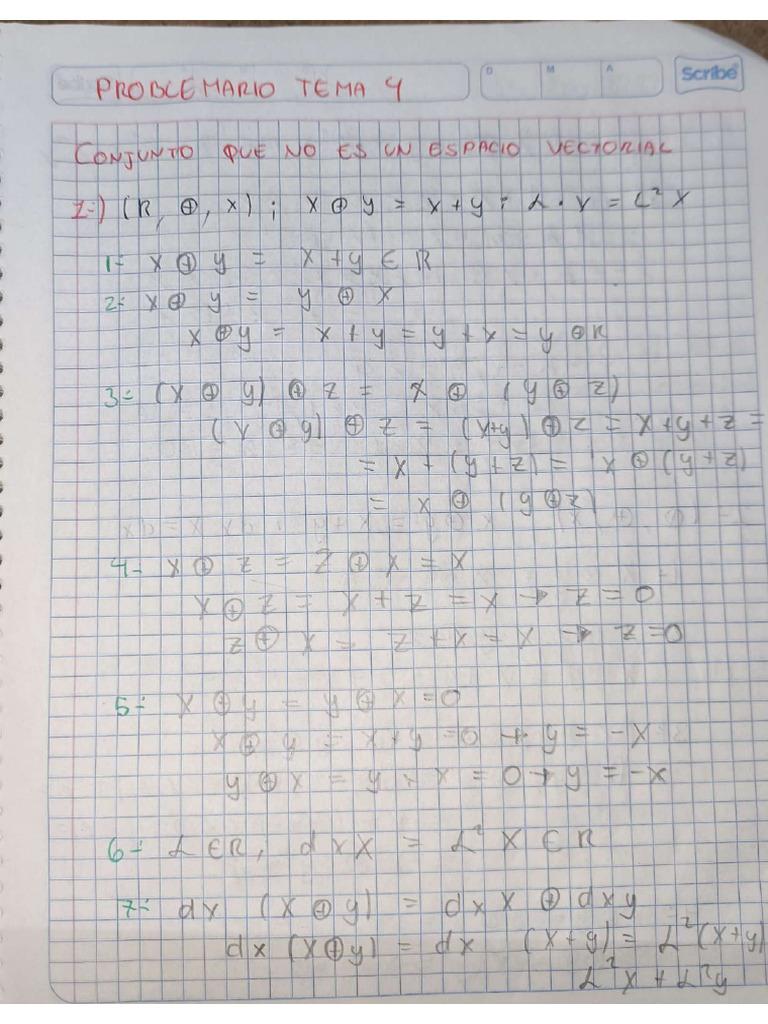 PROBLEMARIO TEMA 4
D M A
Scribe
CONJUNTO QUE NO ES UN ESPACIO VECTORIAL
1-) (R, ⊕, x) ; x ⊕ y = x + y ; α · x = α² x
1- x ⊕ y = x + y ∈ R
2- x ⊕ y = y ⊕ x
x ⊕ y = x + y = y + x = y ⊕
3- (x ⊕ y) ⊕ z = x ⊕ (y ⊕ z)
(x ⊕ y) ⊕ z = (x+y) ⊕ z = x + y + z =
= x + (y + z) = x ⊕ (y + z)
= x ⊕ (y ⊕ z)
4- x ⊕ z = z ⊕ x = x
x ⊕ z = x + z = x → z = 0
z ⊕ x = z + x = x → z = 0
5- x ⊕ y = y ⊕ x = 0
x ⊕ y = x + y = 0 → y = -x
y ⊕ x = y + x = 0 → y = -x
6- α ∈ R, α x x = α² x ∈ R
7- αx (x ⊕ y) = αxx ⊕ αxy
αx (x ⊕ y) = αx (x + y) = α² (x + y)
α² x + α² y